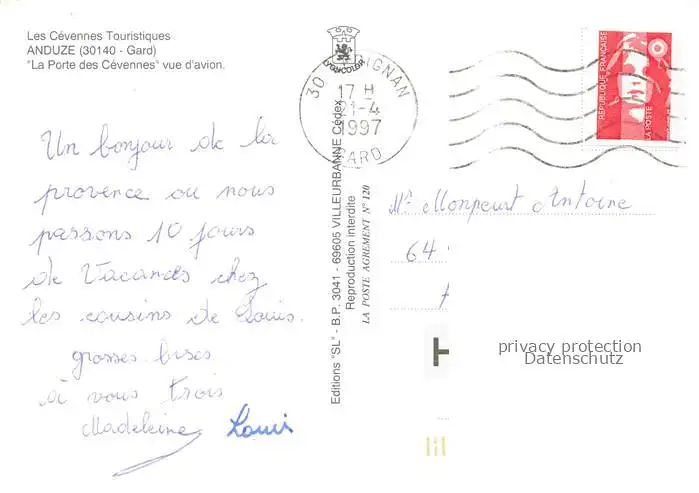 Les Cévennes Touristiques
ANDUZE (30140 - Gard)
"La Porte des Cévennes" vue d'avion.
Un bonjour de la
provence ou nous
passons 10 jours
de Vacances chez
les cousins de Louis.
grosses bises
à vous trois
Madeleine Louis
Editions "SL" - B.P. 3041 - 69605 VILLEURBANNE Cédex
Reproduction interdite
LA POSTE AGREMENT N° 120
30
17 H
21-4
1997
GARD
REPUBLIQUE FRANÇAISE
LA POSTE
Mr Monpeurt Antoine
64
privacy protection
Datenschutz